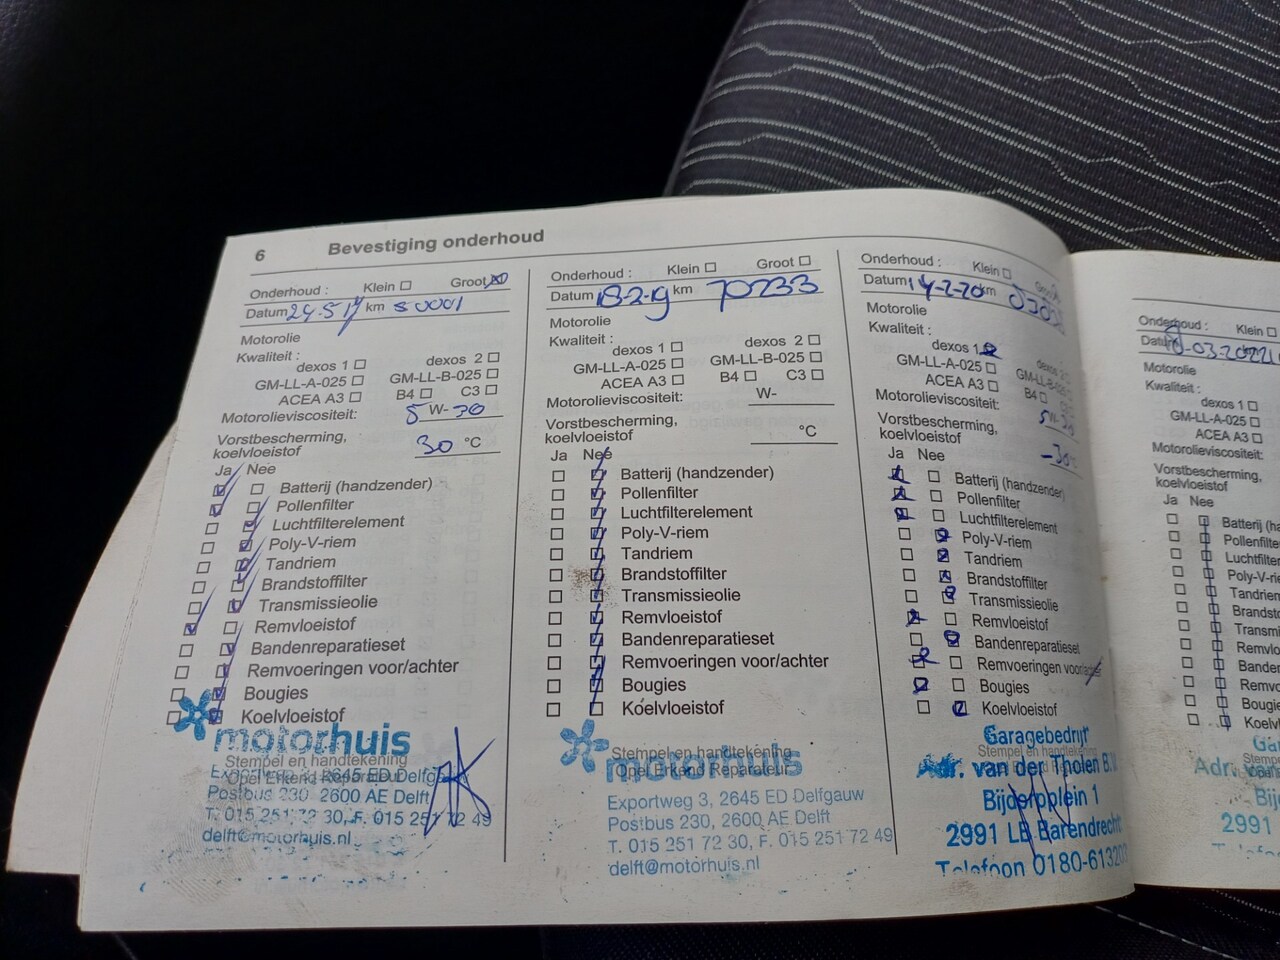 6 Bevestiging onderhoud
Onderhoud : Klein Groot
Datum 24-5-17 km 50001
Motorolie
Kwaliteit :
dexos 1 dexos 2
GM-LL-A-025 GM-LL-B-025
ACEA A3 B4 C3
Motorolieviscositeit: 5 W- 30
Vorstbescherming,
koelvloeistof 30 °C
Ja Nee
Batterij (handzender)
Pollenfilter
Luchtfilterelement
Poly-V-riem
Tandriem
Brandstoffilter
Transmissieolie
Remvloeistof
Bandenreparatieset
Remvoeringen voor/achter
Bougies
Koelvloeistof
motorhuis
Stempel en handtekening
Opel Erkend Reparateur
2645 ED Delfgauw
Postbus 230, 2600 AE Delft
T. 015 251 72 30, F. 015 251 72 49
delft@motorhuis.nl
Onderhoud : Klein Groot
Datum 18-2-19 km 70233
Motorolie
Kwaliteit :
dexos 1 dexos 2
GM-LL-A-025 GM-LL-B-025
ACEA A3 B4 C3
Motorolieviscositeit: W-
Vorstbescherming,
koelvloeistof °C
Ja Nee
Batterij (handzender)
Pollenfilter
Luchtfilterelement
Poly-V-riem
Tandriem
Brandstoffilter
Transmissieolie
Remvloeistof
Bandenreparatieset
Remvoeringen voor/achter
Bougies
Koelvloeistof
Stempel en handtekening
motorhuis
Opel Erkend Reparateur
Exportweg 3, 2645 ED Delfgauw
Postbus 230, 2600 AE Delft
T. 015 251 72 30, F. 015 251 72 49
delft@motorhuis.nl
Onderhoud : Klein Groot
Datum 14-2-20 km
Motorolie
Kwaliteit :
dexos 1 dexos 2
GM-LL-A-025 GM-LL-B-025
ACEA A3 B4
Motorolieviscositeit: 5 W-30
Vorstbescherming,
koelvloeistof -30
Ja Nee
Batterij (handzender)
Pollenfilter
Luchtfilterelement
Poly-V-riem
Tandriem
Brandstoffilter
Transmissieolie
Remvloeistof
Bandenreparatieset
Remvoeringen
Bougies
Koelvloeistof
Garagebedrijf
Stempel en handtekening
Adr. van der Tholen B.V.
Bijdorpplein 1
2991 LB Barendrecht
Telefoon 0180-613203
Onderhoud : Klein
Datum
Motorolie
Kwaliteit :
dexos 1
GM-LL-A-025
ACEA A3
Motorolieviscositeit:
Vorstbescherming,
koelvloeistof
Ja Nee
Batterij (hand
Pollenfilter
Luchtfilter
Poly-V-rie
Tandriem
Brandsto
Transmi
Remvlo
Banden
Remvo
Bougie
Koelv
Adr.
2991